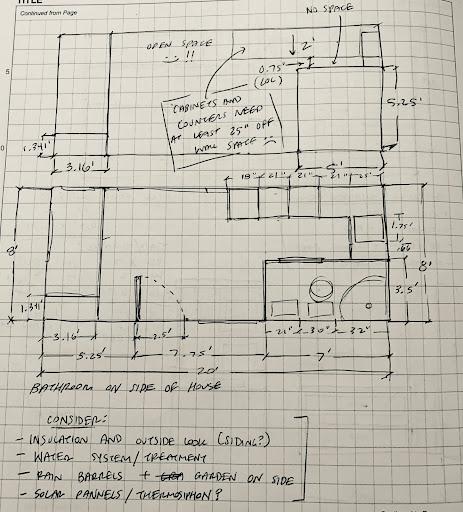 TITLE
Continued from Page
NO SPACE
OPEN SPACE
!!
2'
5
0.75'
(LOL)
CABINETS AND
COUNTERS NEED
AT LEAST 25" OFF
WALL SPACE
5.25'
1.341'
0
3.16'
5'
18" 21" 21" 21" 25"
1.75'
.66
8'
8'
3.5'
1.341
21" 30" 32"
3.16' 2.5'
5.25' 7.75' 7'
20'
BATHROOM ON SIDE OF HOUSE
CONSIDER:
- INSULATION AND OUTSIDE LOOK (SIDING?)
- WATER SYSTEM/TREATMENT
- RAIN BARRELS + GARDEN ON SIDE
- SOLAR PANNELS/THERMOSIPHON?